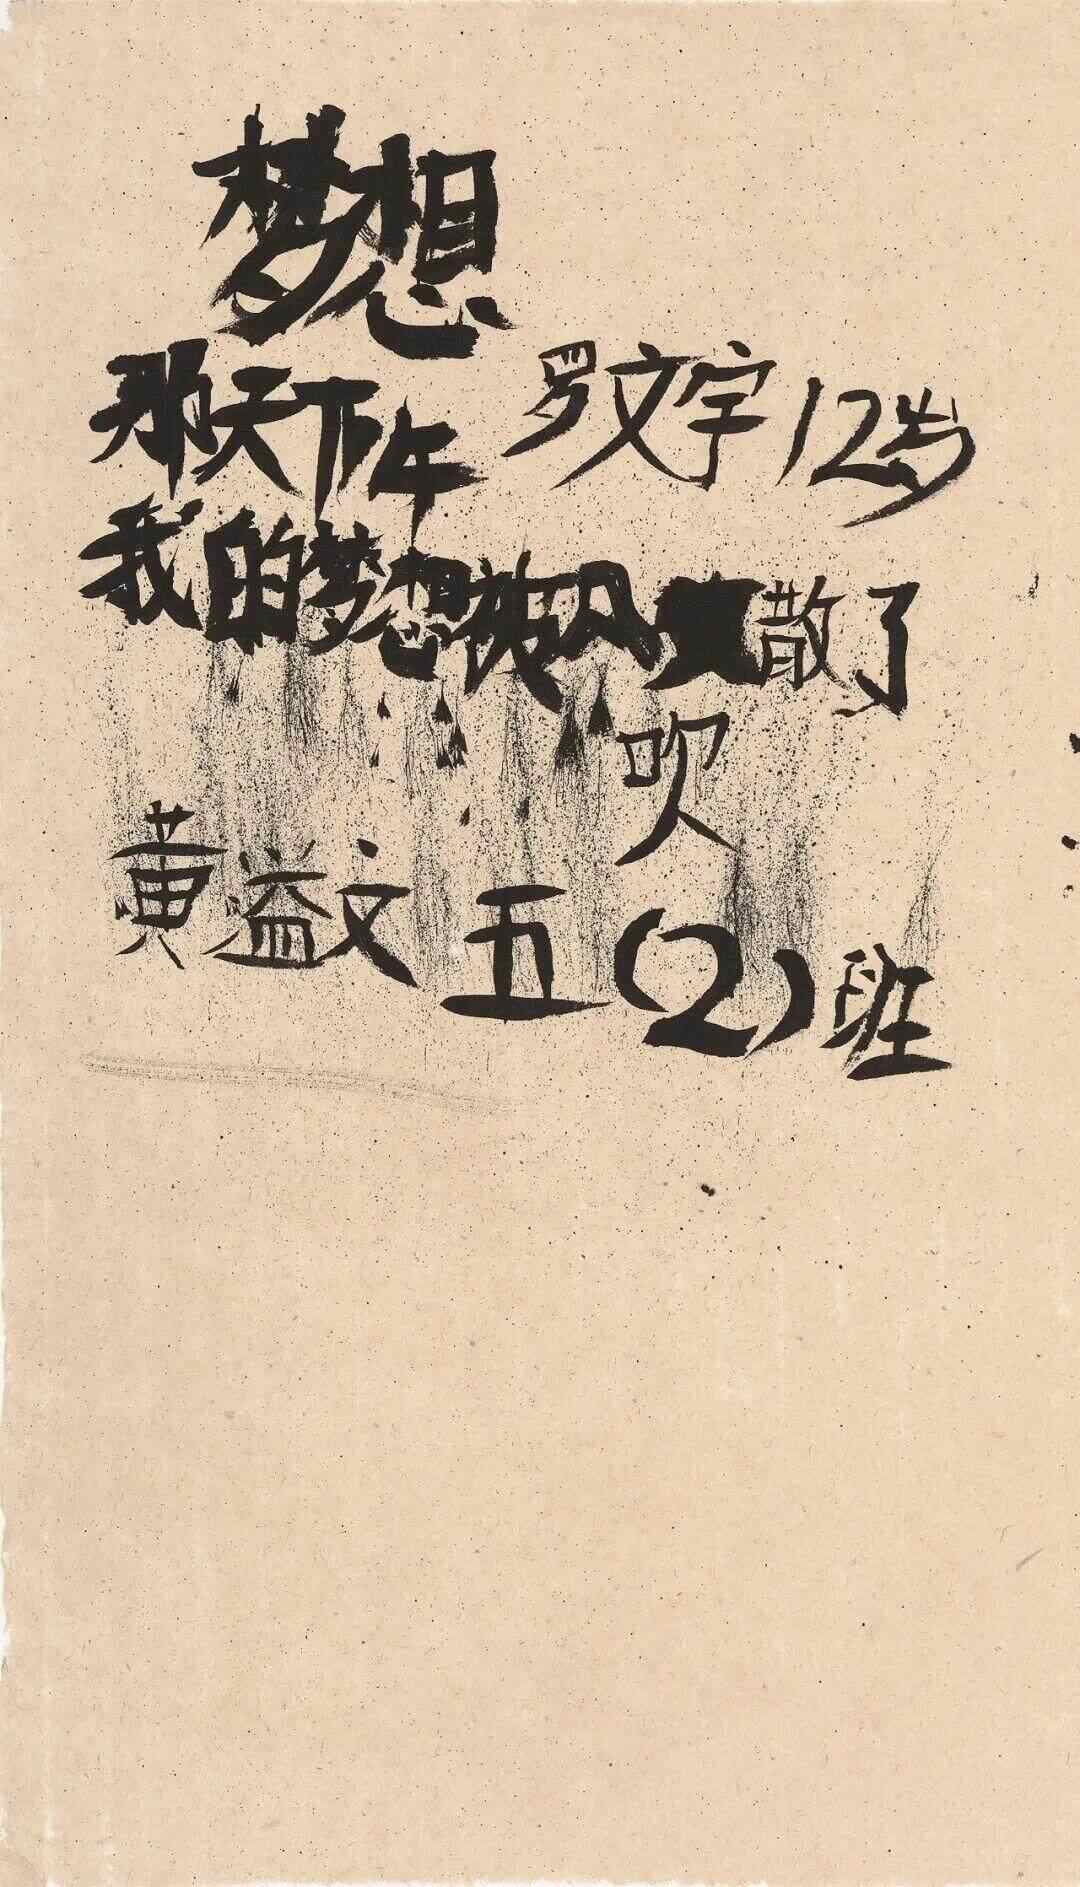 梦想
罗文宇 12岁
那天下午
我的梦想被风散了
吹
黄溢文 五(2)班